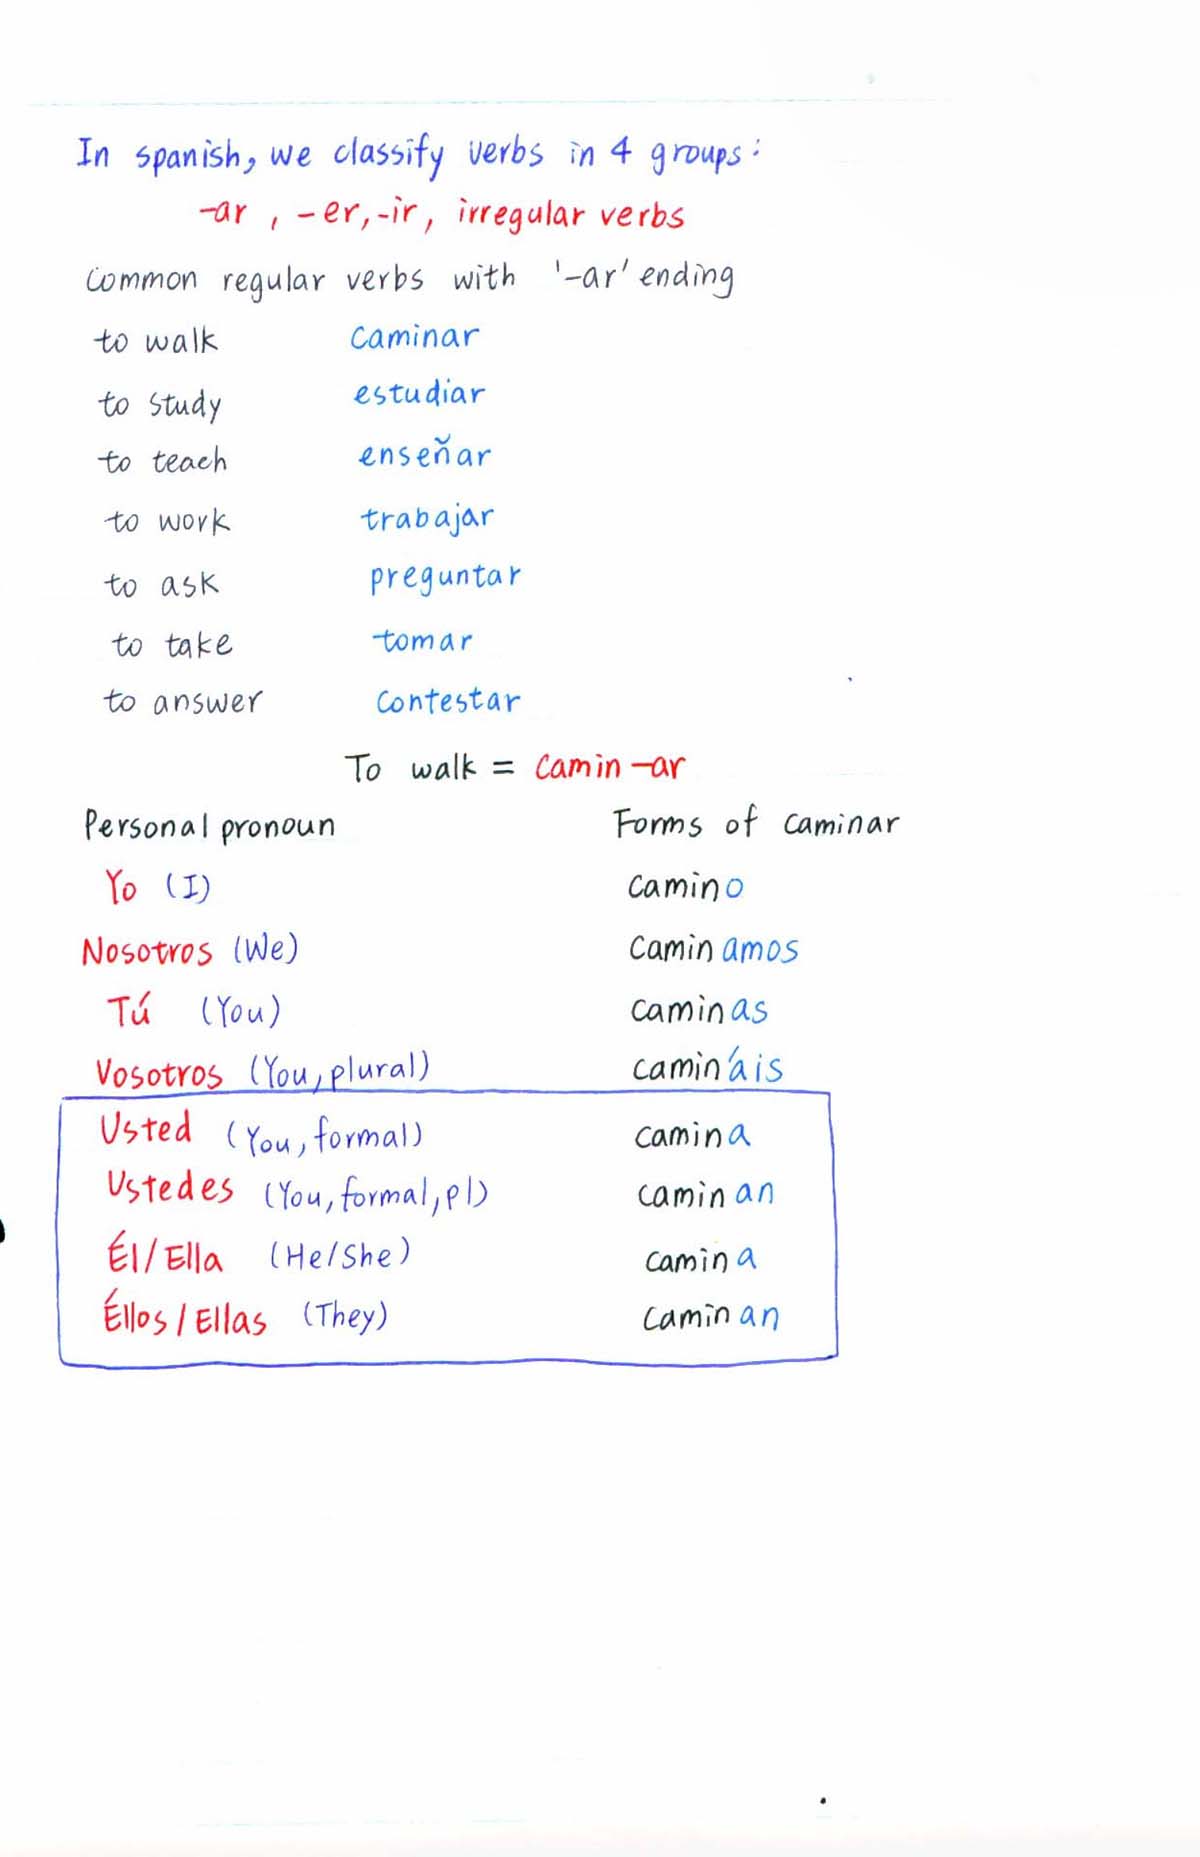 In spanish, we classify verbs in 4 groups:
-ar, -er, -ir, irregular verbs
Common regular verbs with '-ar' ending
to walk caminar
to study estudiar
to teach enseñar
to work trabajar
to ask preguntar
to take tomar
to answer contestar
To walk = camin-ar
Personal pronoun Forms of caminar
Yo (I) camino
Nosotros (We) caminamos
Tú (You) caminas
Vosotros (You, plural) camináis
Usted (You, formal) camina
Ustedes (You, formal, pl) caminan
Él/Ella (He/She) camina
Éllos/Ellas (They) caminan